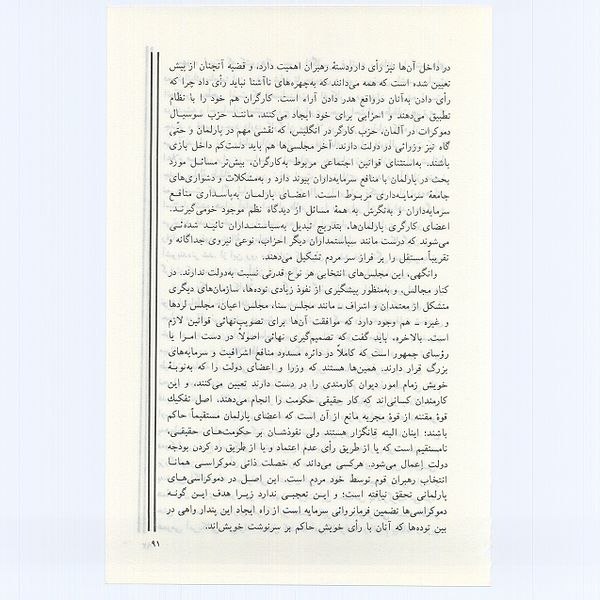 در داخل آن‌ها نیز رأی دارودستهٔ رهبران اهمیت دارد، و قضیه آنچنان از پیش
تعیین شده است که همه می‌دانند که به‌چهره‌های ناآشنا نباید رأی داد چرا که
رأی دادن به‌آنان درواقع هدر دادن آراء است. کارگران هم خود را با نظام
تطبیق می‌دهند و احزابی برای خود ایجاد می‌کنند، مانند حزب سوسیال
دموکرات در آلمان، حزب کارگر در انگلیس، که نقشی مهم در پارلمان و حتّی
گاه نیز وزرائی در دولت دارند. آخر مجلسی‌ها هم باید دست‌کم داخل بازی
باشند. به‌استثنای قوانین اجتماعی مربوط به‌کارگران، بیش‌تر مسائل مورد
بحث در پارلمان با منافع سرمایه‌داران پیوند دارد و به‌مشکلات و دشواری‌های
جامعهٔ سرمایه‌داری مربوط است. اعضای پارلمان به‌پاسداری منافع
سرمایه‌داران و به‌نگرش به همهٔ مسائل از دیدگاه نظم موجود خومی‌گیرند.
اعضای کارگری پارلمان‌ها، بتدریج تبدیل به‌سیاستمداران تائید شده‌ئی
می‌شوند که درست مانند سیاستمداران دیگر احزاب، نوعی نیروی جداگانه و
تقریباً مستقل را بر فراز سر مردم تشکیل می‌دهند.
وانگهی، این مجلس‌های انتخابی هر نوع قدرتی نسبت به‌دولت ندارند. در
کنار مجالس، و به‌منظور پیشگیری از نفوذ زیادی توده‌ها، سازمان‌های دیگری
متشکل از معتمدان و اشراف ـ مانند مجلس سنا، مجلس اعیان، مجلس لردها
و غیره ـ هم وجود دارد که موافقت آن‌ها برای تصویب‌نهائی قوانین لازم
است. بالاخره، باید گفت که تصمیم‌گیری نهائی اصولاً در دست امرا یا
رؤسای جمهور است که کاملاً در دائره مسدود منافع اشرافیت و سرمایه‌های
بزرگ قرار دارند. همین‌ها هستند که وزرا و اعضای دولت را که به‌نوبهٔ
خویش زمام امور دیوان کارمندی را در دست دارند تعیین می‌کنند، و این
کارمندان کسانی‌اند که کار حقیقی حکومت را انجام می‌دهند. اصل تفکیك
قوهٔ مقننه از قوهٔ مجریه مانع از آن است که اعضای پارلمان مستقیماً حاکم
باشند؛ اینان البته قانگزار هستند ولی نفوذشان بر حکومت‌های حقیقی،
نامستقیم است که یا از طریق رأی عدم اعتماد و یا از طریق رد کردن بودجه
دولت إعمال می‌شود. هرکسی می‌داند که خصلت ذاتی دموکراسی همانا
انتخاب رهبران قوم توسط خود مردم است. این اصل در دموکراسی‌های
پارلمانی تحقق نیافته است؛ و این تعجبی ندارد زیرا هدف این گونه
دموکراسی‌ها تضمین فرمانروائی سرمایه است از راه ایجاد این پندار واهی در
بین توده‌ها که آنان با رأی خویش حاکم بر سرنوشت خویش‌اند.
۹۱